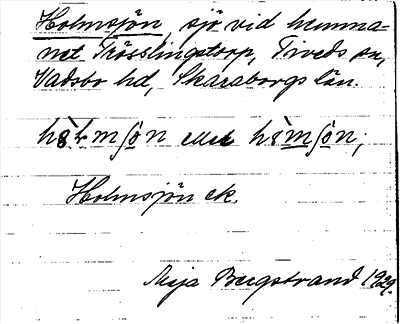 Holmsjön, sjö vid hemma-
net Trösslingstorp, Tiveds sn,
Vadsbo hd, Skaraborgs län.
hòlmſön eller hòmſön;
Holmsjön ek.
Maja Bergstrand 1929.